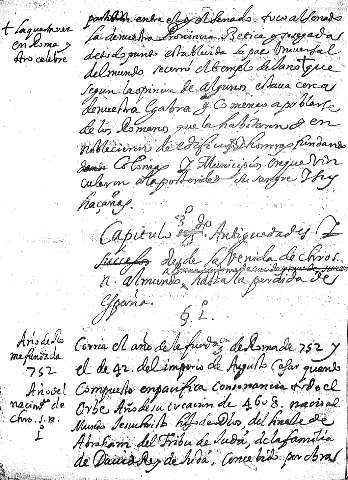 + la qua tuvo
en Roma y
otro celebre
partidas entre el y el senado. tuvo al senado
la de nuestra Provincia Betica y sosegadas
de todo punto establecida la paz universal
del mundo cerró el templo de Jano que
segun la opinion de algunos estava cerca
de nuestra Cabra y començo a poblarse
de los Romanos que la habitaron y en
noblecieron de edificios y honras fundando
Colonias y Municipios en que vin
cularon a la posteridad su sangre y sus
haçañas.
Capitulo 2º de Antiguedades y
desde la venida de Chros.
n. al mundo, hasta la perdida de
españa.
§. 1.
Año de Ro
ma fundada
752
Año del
nacimto. de
Chro. S. N.
1
Corria el año de la fundaon. de Roma de 752 y
el de 42. del imperio de Agusto Cesar quando
Compuesto en pacifica consonancia todo el
Orbe Año de su creacion de 4058. nacio al
Mundo Jesuchristo hijo de Dios. del linaje de
Abraham del Tribu de Judá, de la familia
de David Rey de Judá, Concebido por obra